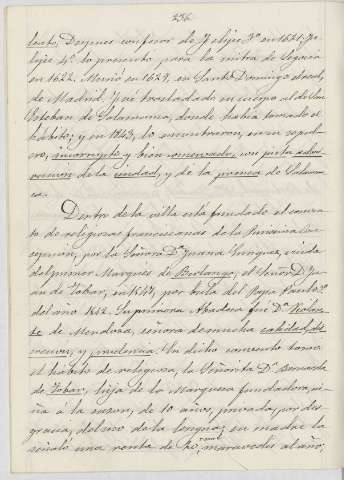 236
lecto, Despues confesor de Felipe 3º en 1621. Fe-
lipe 4º lo presentó para la mitra de Segovia
en 1622. Murió en 1629, en Santo Domingo el real,
de Madrid. Fué trasladado su cuerpo al de San
Esteban de Salamanca, donde habia tomado el
habito; y en 1843, lo encontraron, en su sepul-
cro, incorrupto y bien conservado, con justa admi-
racion de la ciudad, y de la prensa de Salaman-
ca.
Dentro de la villa está fundado el conven-
to de religiosas franciscanas de la Purisima Con-
cepcion, por la Señora Dª Juana Enriquez, viuda
del primer Marques de Berlanga, el Señor D. Ju-
an de Tobar, en 1547, por bula del Papa Paulo 3º
del año 1542. Su primera Abadesa fué Dª Violan-
te de Mendoza, señora de mucha santidad, dis-
crecion, y prudencia. En dicho convento tomó
el habito de religiosa, la Señorita Dª Bernarda
de Tobar, hija de la Marquesa fundadora, ni-
ña á la sazon, de 10 años, privada, por des-
gracia, del uso de la lengua; su madre la
señaló una renta de 20 mil maravedis al año;